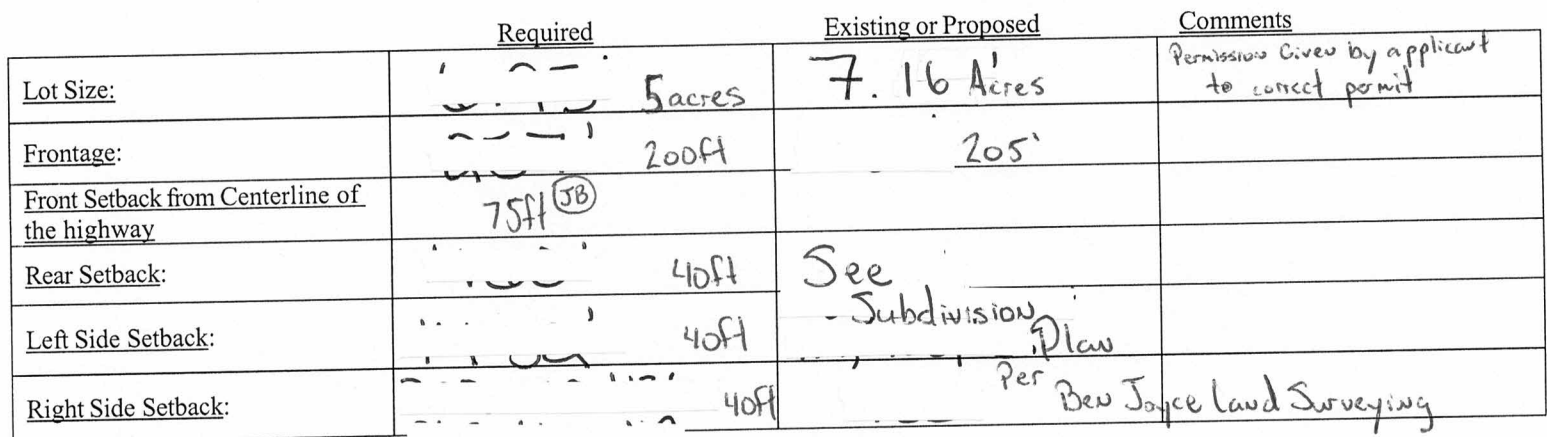 Required Existing or Proposed Comments
Lot Size: 5acres 7.16 Acres Permission Given by applicant
to correct permit
Frontage: 200ft 205'
Front Setback from Centerline of
the highway 75ft JB
Rear Setback: 40ft See
Subdivision
Left Side Setback: 40ft Plan
Per
Right Side Setback: 40ft Ben Joyce Land Surveying